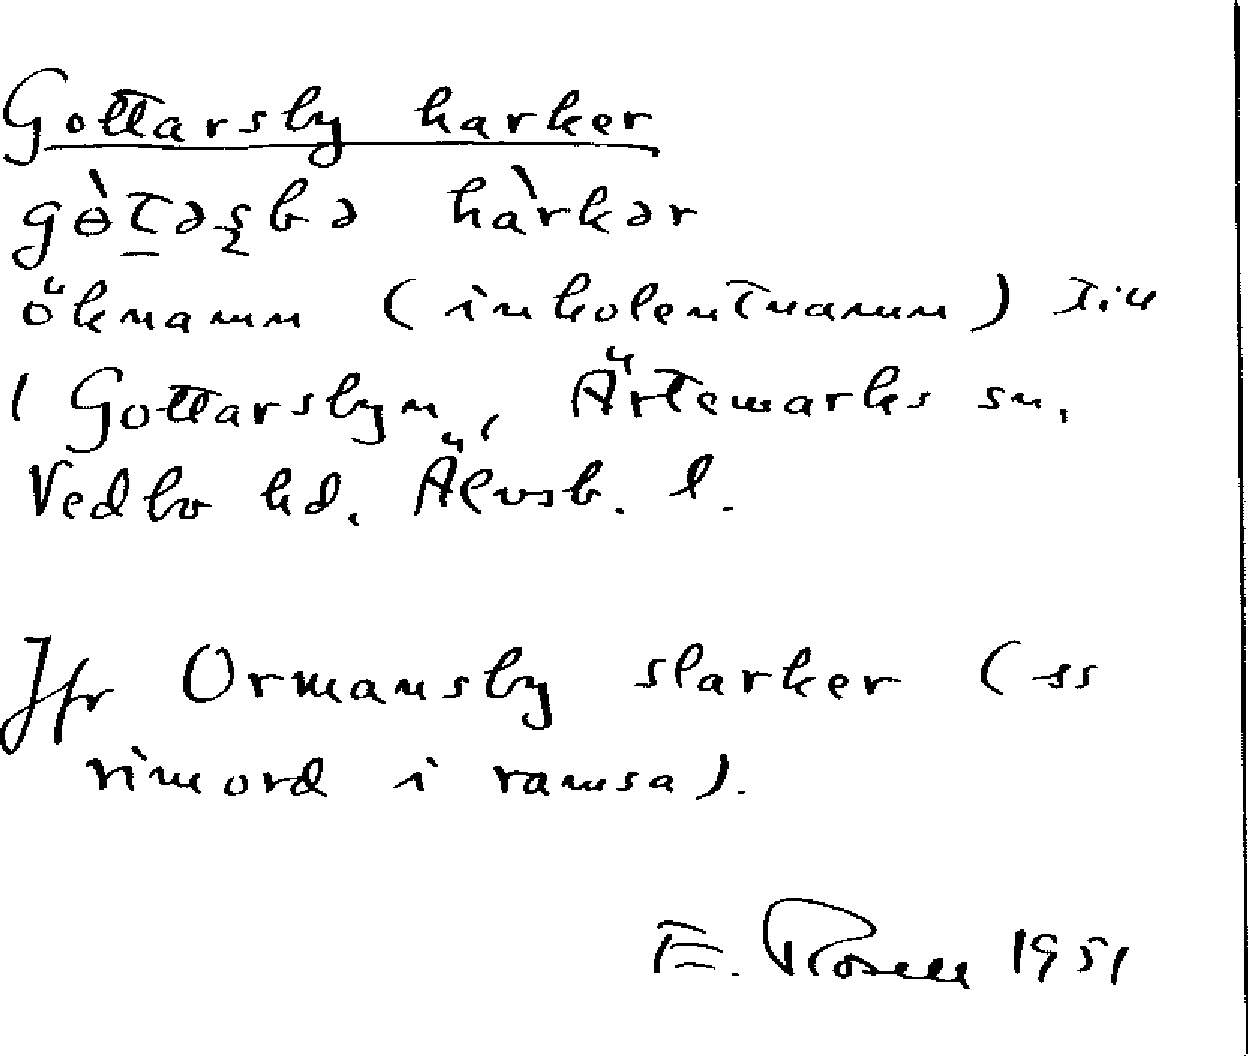 Gottarsby harker
gɵ̀təʂbə hàrkər
öknamn (inkolentnamn) till
1 Gottarsbyn, Ärtemarks sn,
Vedbo hd, Älvsb. l.
Jfr Ormansby slarker (ss
rimord i ramsa).
E. Rosell 1951